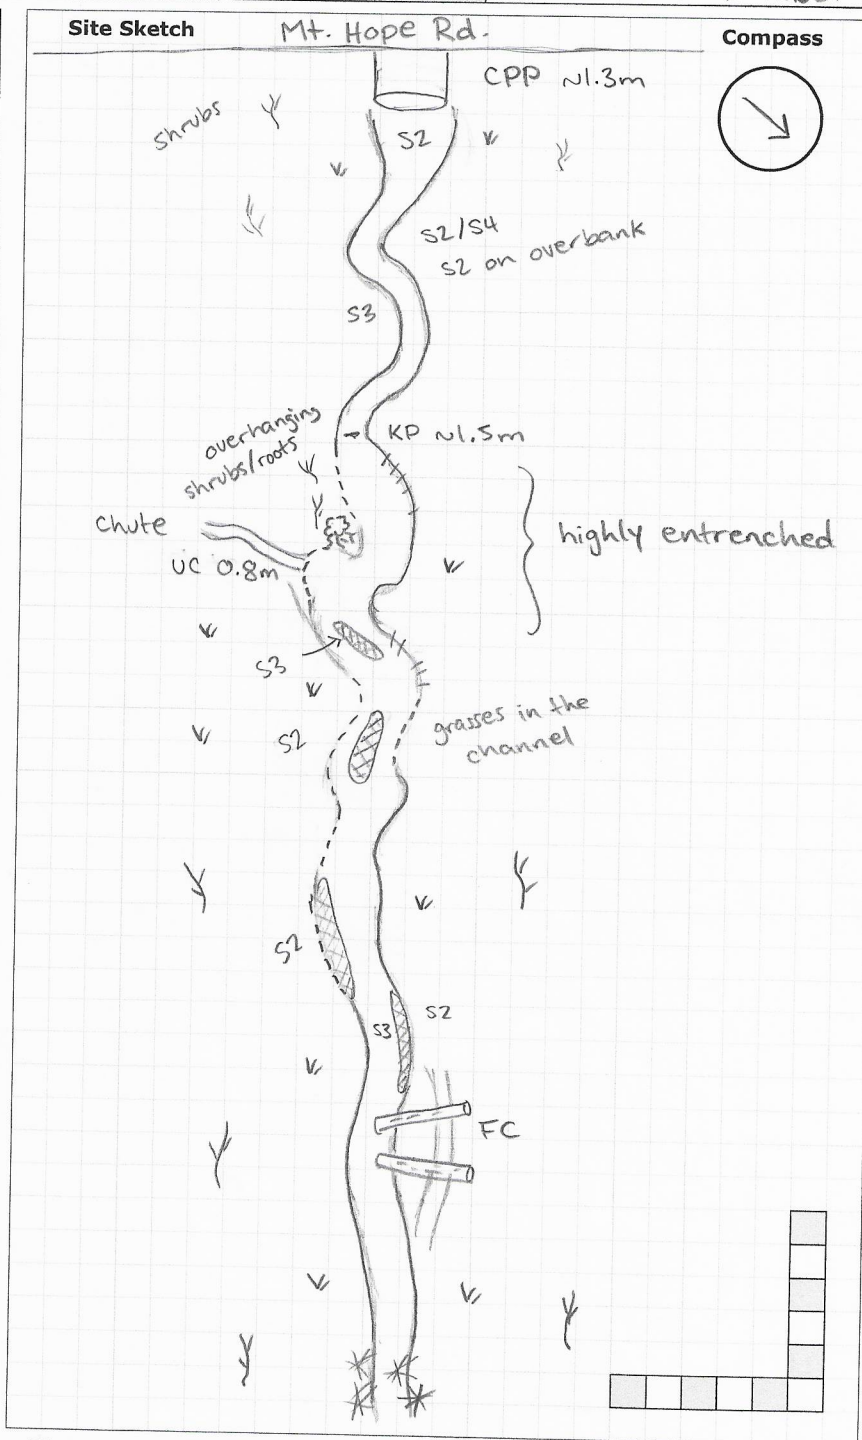 Site Sketch
Mt. Hope Rd.
Compass
CPP ~1.3m
shrubs
S2
S2/S4
S2 on overbank
S3
overhanging
shrubs/roots
KP ~1.5m
chute
UC 0.8m
highly entrenched
S3
S2
grasses in the
channel
S2
S3
S2
FC